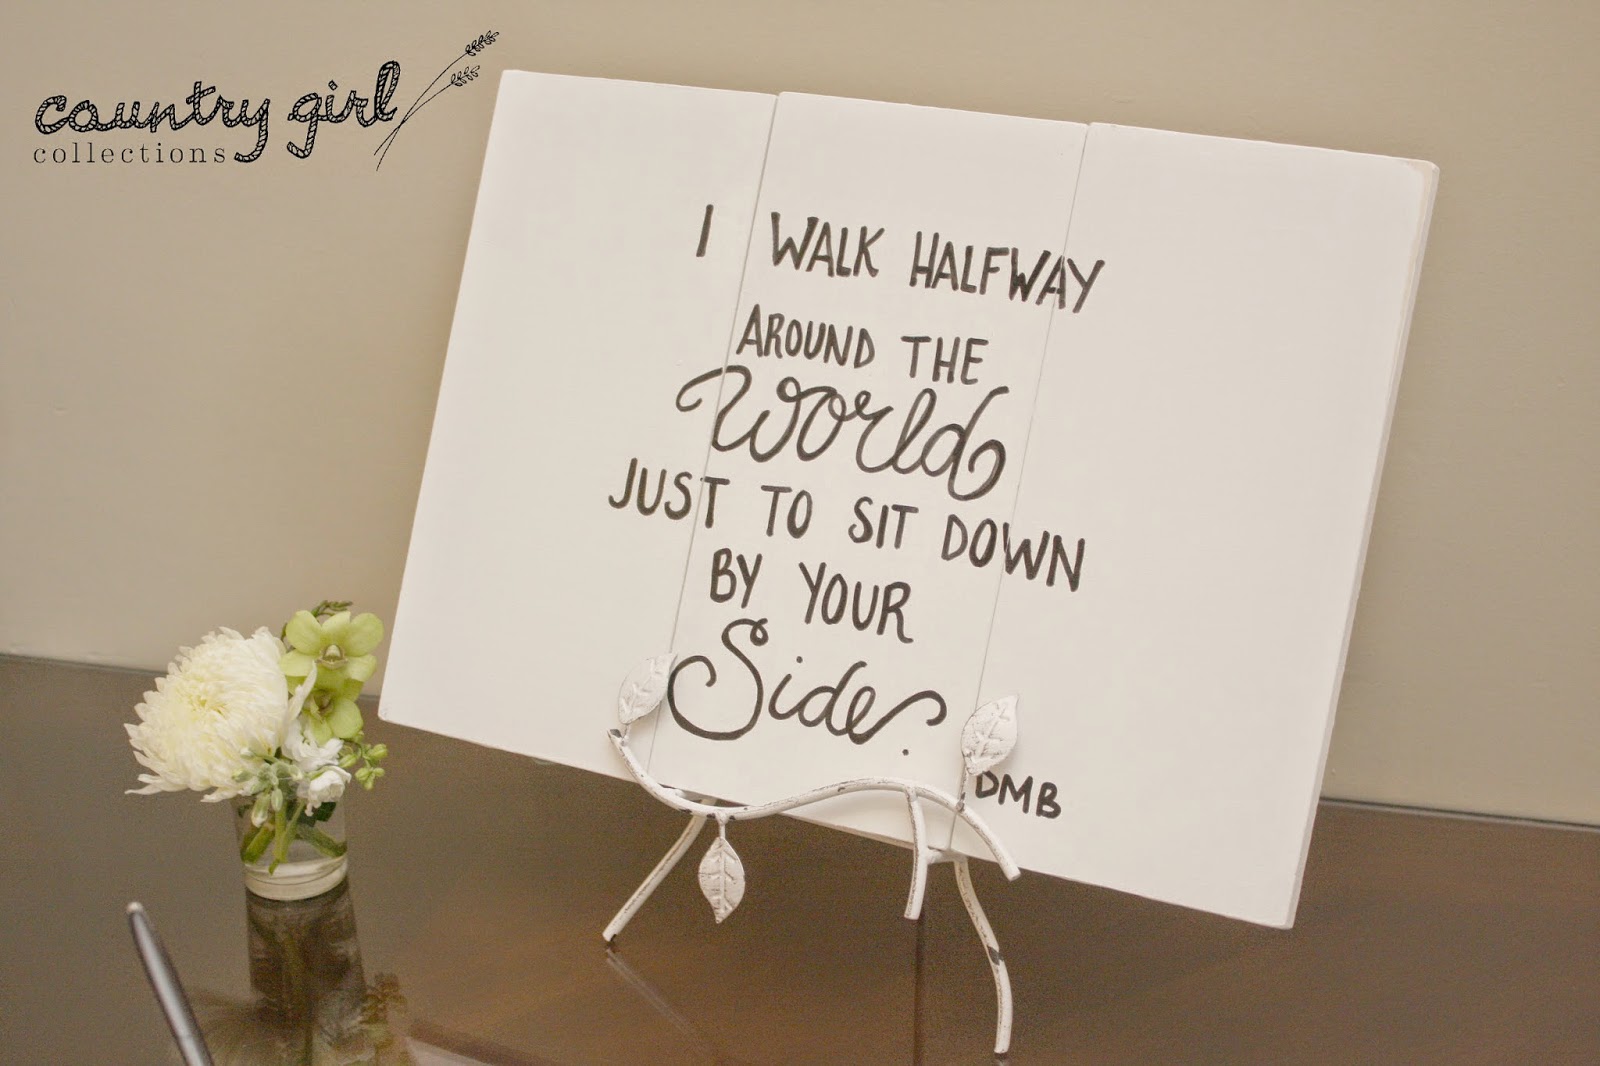 country girl
collections
I WALK HALFWAY
AROUND THE
World
JUST TO SIT DOWN
BY YOUR
Side.
DMB